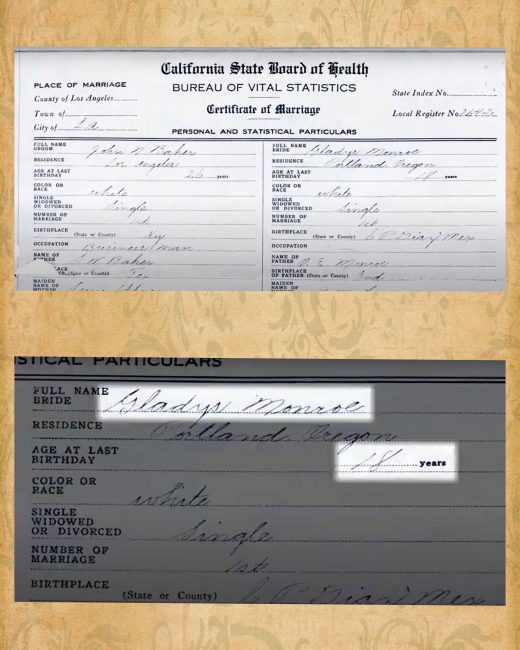 California State Board of Health
BUREAU OF VITAL STATISTICS
Certificate of Marriage
PLACE OF MARRIAGE
County of Los Angeles
Town of
City of L A
State Index No.
Local Register No.
PERSONAL AND STATISTICAL PARTICULARS
FULL NAME GROOM John N Baker
RESIDENCE Los Angeles
AGE AT LAST BIRTHDAY 26 years
COLOR OR RACE white
SINGLE WIDOWED OR DIVORCED Single
NUMBER OF MARRIAGE 1st
BIRTHPLACE (State or County) Ky
OCCUPATION Business Man
NAME OF FATHER Baker
(State or County)
MAIDEN NAME OF MOTHER
FULL NAME BRIDE Gladys Monroe
RESIDENCE Portland Oregon
AGE AT LAST BIRTHDAY 18 years
COLOR OR RACE white
SINGLE WIDOWED OR DIVORCED Single
NUMBER OF MARRIAGE 1st
BIRTHPLACE (State or County) C P Diaz Mex
OCCUPATION
NAME OF FATHER O. E. Monroe
BIRTHPLACE OF FATHER (State or County) Ind
MAIDEN NAME OF MOTHER
STICAL PARTICULARS
FULL NAME
BRIDE Gladys Monroe
RESIDENCE Portland Oregon
AGE AT LAST
BIRTHDAY 18 years
COLOR OR
RACE white
SINGLE
WIDOWED
OR DIVORCED Single
NUMBER OF
MARRIAGE 1st
BIRTHPLACE
(State or County) C P Diaz Mex